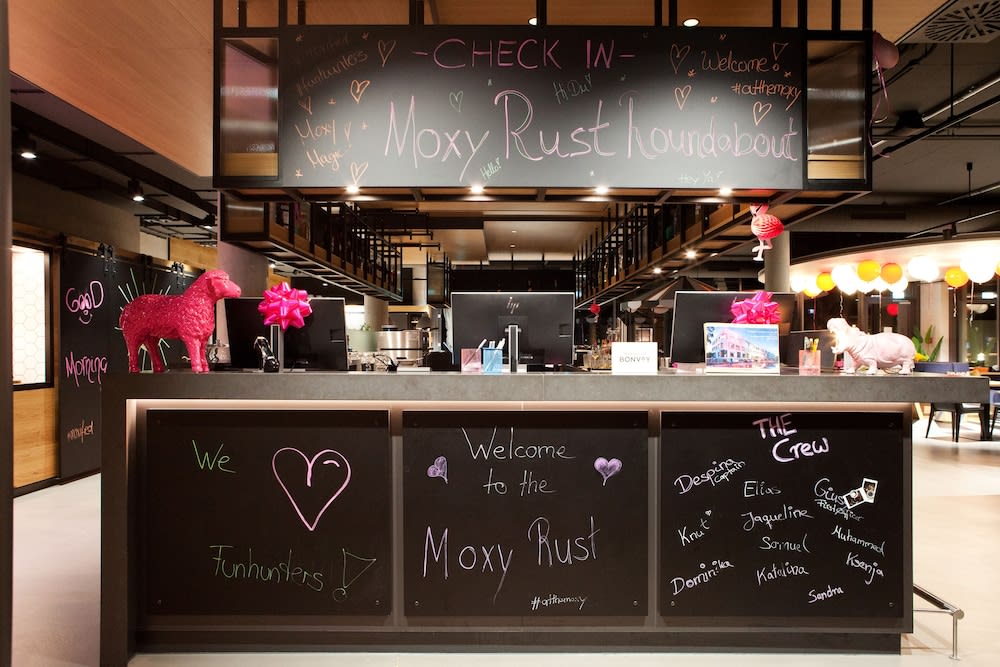 -CHECK IN-
#funhunters
Hi Du!
Welcome!
#atthemoxy
Moxy
Magic
Moxy Rust Roundabout
Hello!
Hey Ya!
GooD
Morning
BONVOY
We
Funhunters!
Welcome
to the
Moxy Rust
#atthemoxy
THE
Crew
Despina
Captain
Elias
Gius
Knut
Jaqueline
Muhammad
Samuel
Ksenja
Dominika
Katalina
Sandra